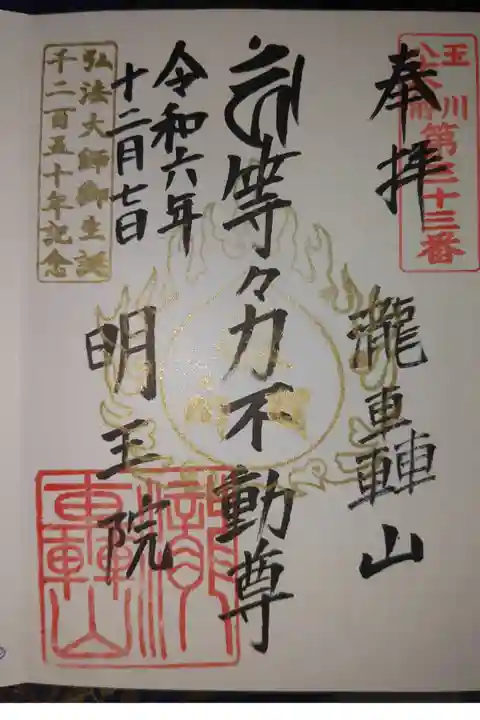 奉拝
玉川
八十八ヶ所
第三十三番
瀧轟山
等々力不動尊
令和六年
十二月七日
明王院
弘法大師御生誕
千二百五十年記念
瀧
轟山